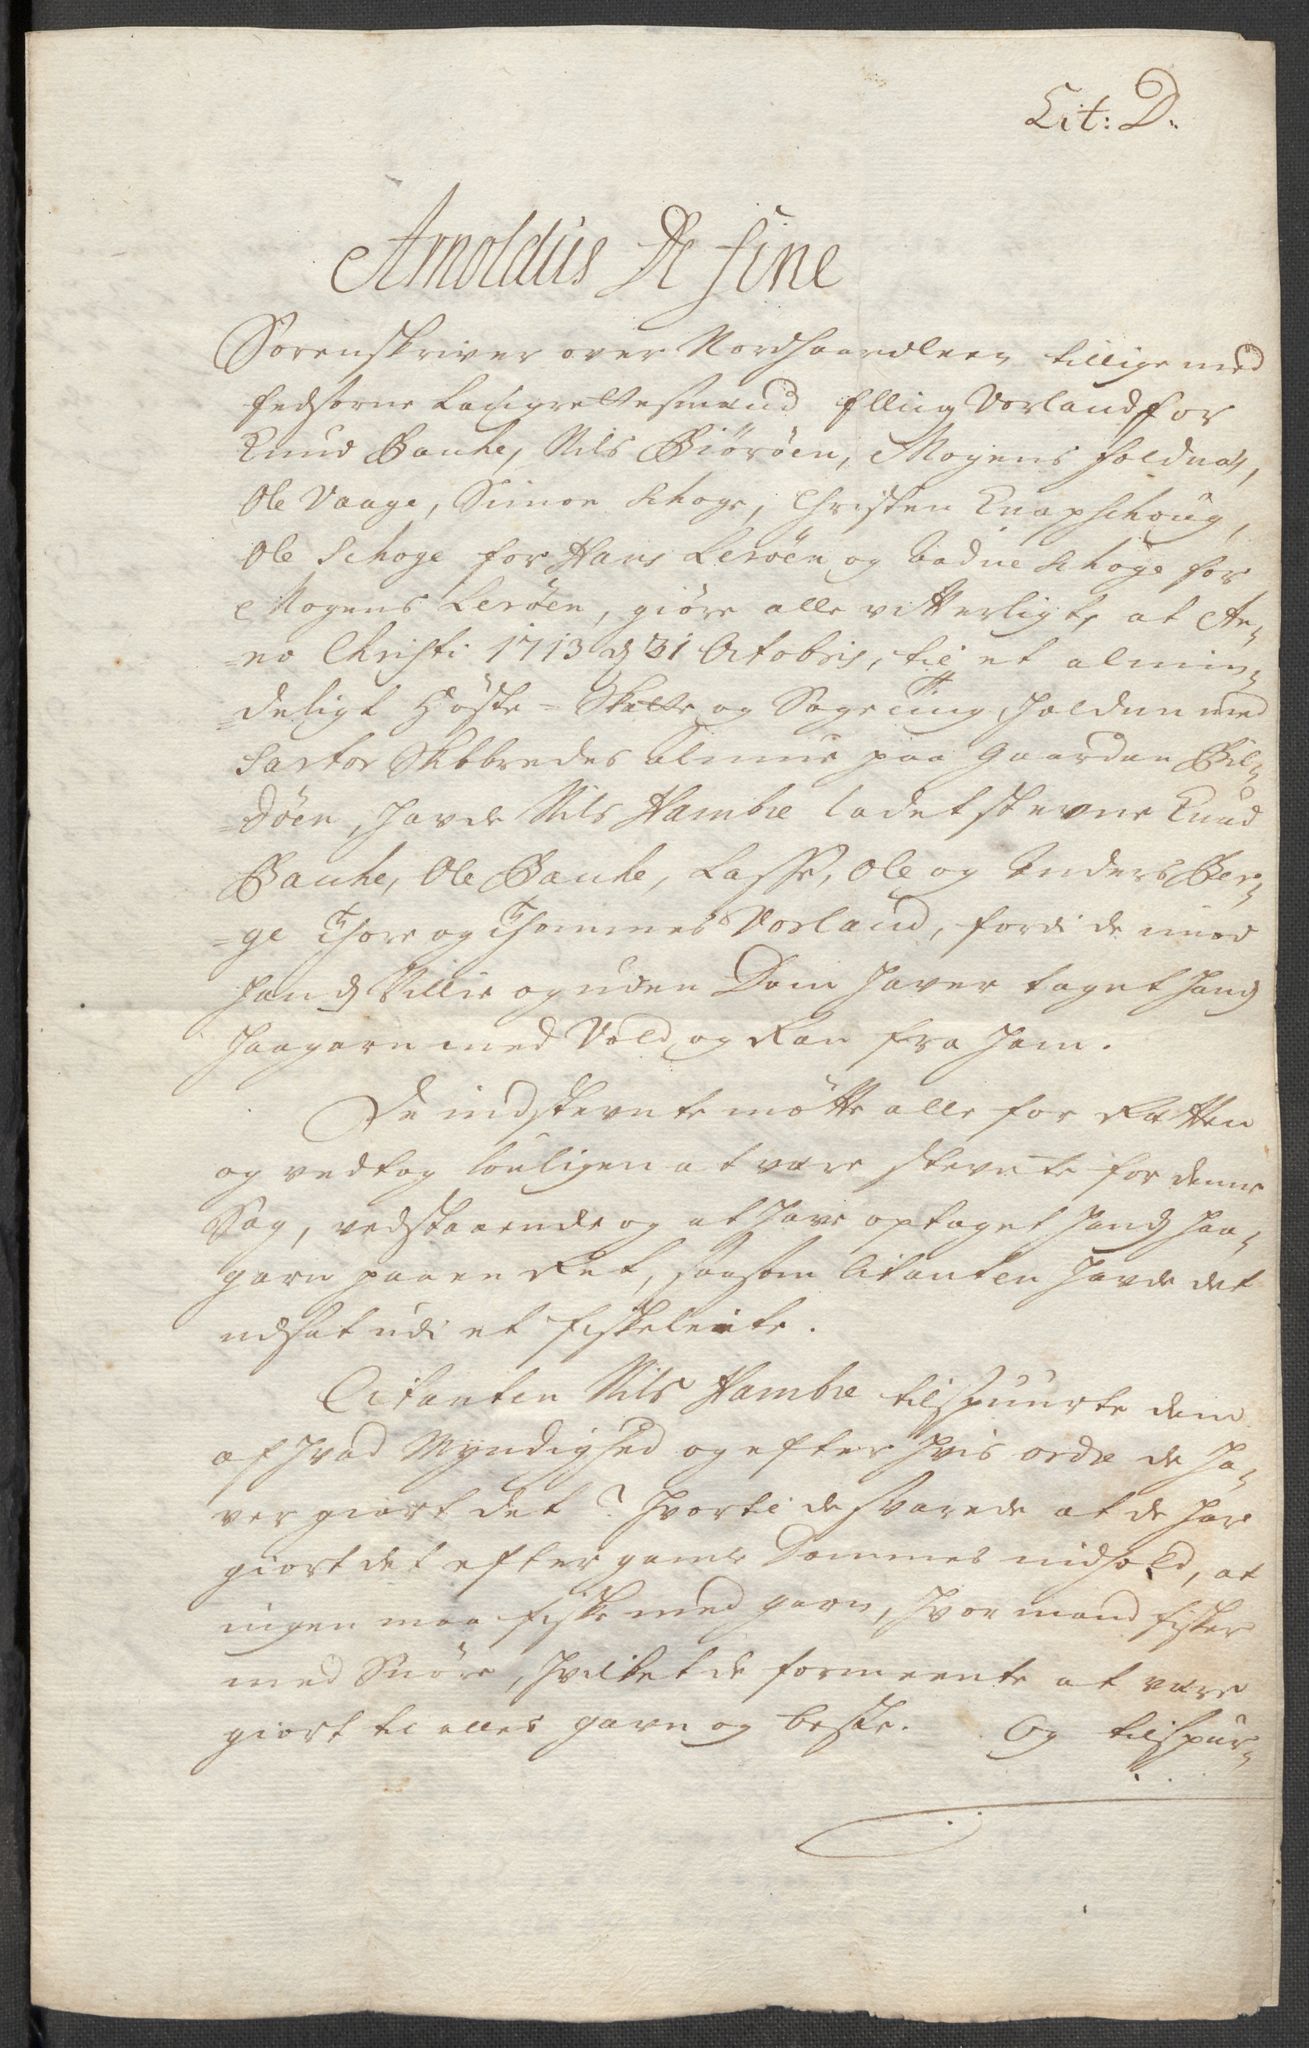 Lit: D.
Arnoldus De Fine
Sorenskriver over Nordhaardlen, tillige med
Eedsorne Laugrettesmænd Elling Vorland for
Knud Bauke, Nils Biöröen, Mogens Foldnæs,
Ole Vaage, Simon Schoge, Christen Knapschoug,
Ole Schoge for Hans Leröen og Badne Schoge for
Mogens Leröen, giöre alle vitterligt, at An„
„no Christi 1713 d 31 Octobris, til et almin„
„deligt Höste- Skatte og Sage Ting, holden med
Sartor Skibbredes Almue paa Gaarden Bil„
„döen, hafde Nils Hambre ladet stevne Knud
Bauke, Ole Bauke, Lasse, Ole og Anders Ber„
„ge Thore og Thommes Vorland, fordi de imod
hands Villie og uden Dom haver taget hands
haagarn med Vold og Ran fra ham.
De indstevnte mötte alle for Retten
og vedtog louligen at være stevnte for denne
Sag, vedstaaende og at have optaget hands haa„
garn paa en Ret, saasom Citanten havde det
udsat udi et fiskeleite.
Citanten Nils Hambre tilspuurte dem
af hvad Myndighed og efter hvis ordre de ha„
ver giort det? hvortil de svarede at de har
giort det efter gamle Dommes indhold, at
ingen maa fiske med garn, hvor mand fisker
med Snöre, hvilket de formeente at være
giort til alles gavn og beste. Og tilspur„